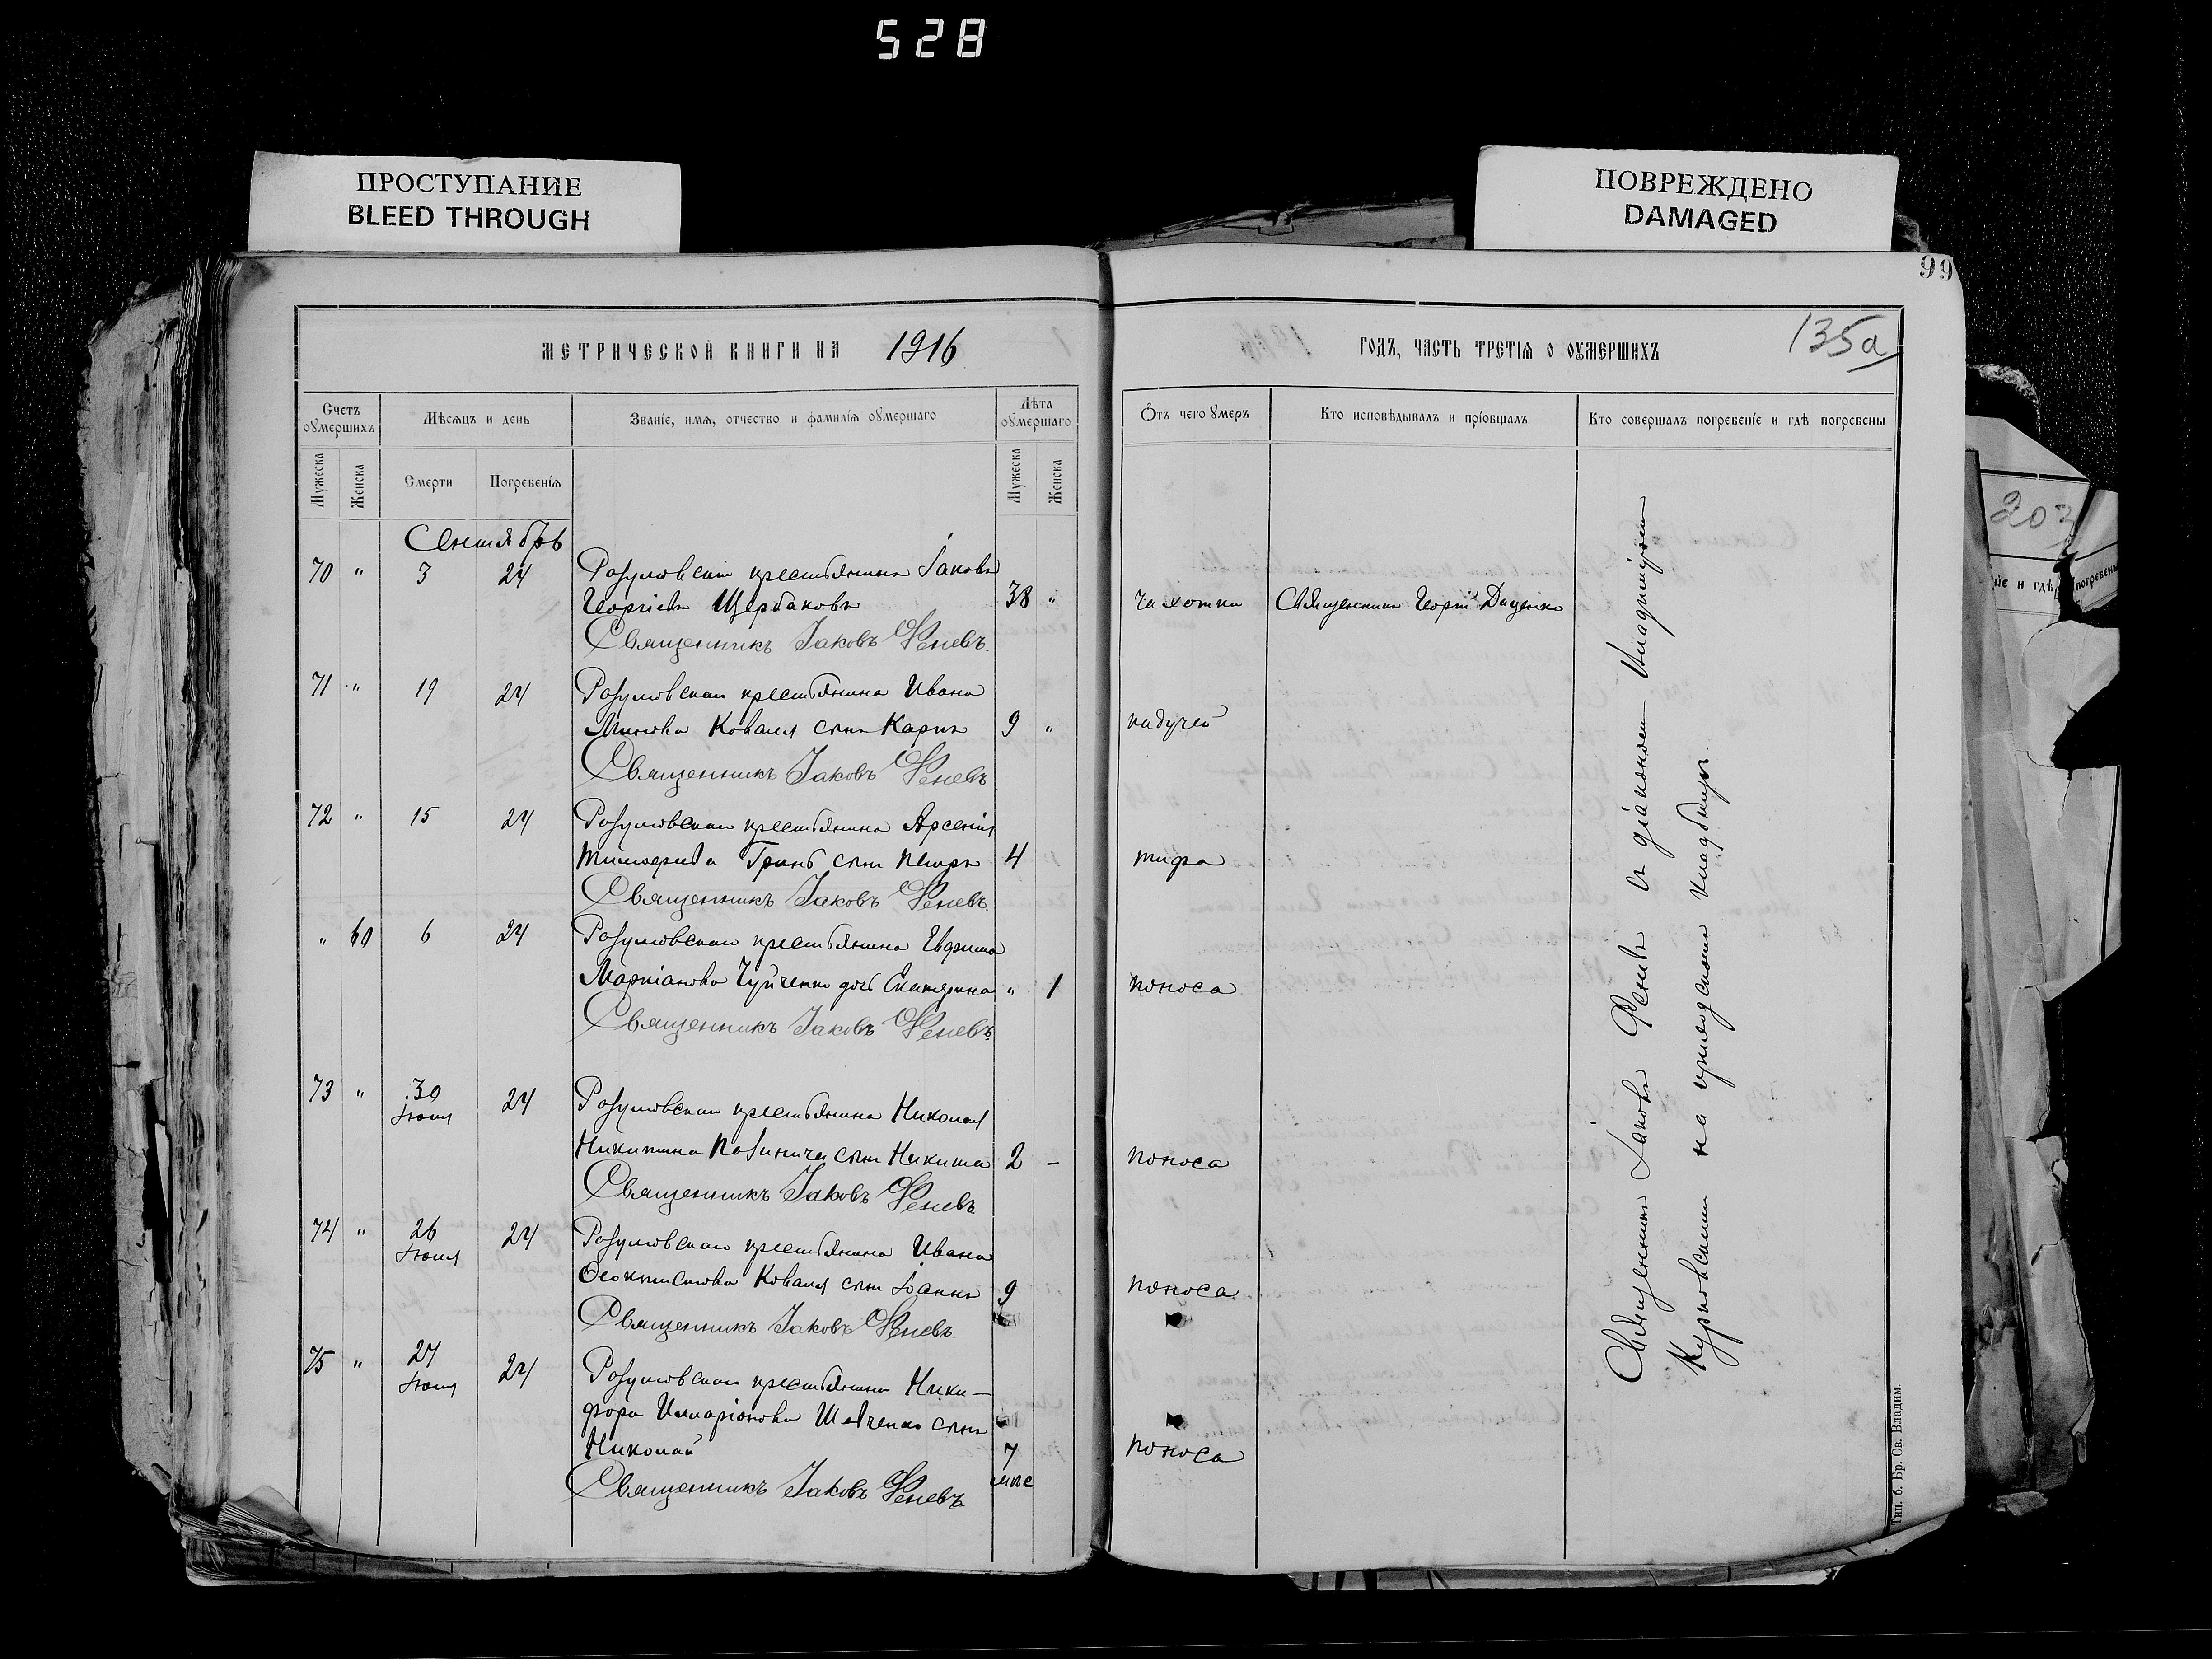 528
ПРОСТУПАНИЕ
BLEED THROUGH
ПОВРЕЖДЕНО
DAMAGED
99
МЕТРИЧЕСКОЙ КНИГИ НА 1916
ГОДЪ, ЧАСТЬ ТРЕТІЯ О ОУМЕРШИХЪ
135а
Счетъ оумершихъ
Мѣсяцъ и день
Званіе, имя, отчество и фамилія оумершаго
Лѣта оумершаго
Отъ чего умеръ
Кто исповѣдывалъ и пріобщалъ
Кто совершалъ погребеніе и гдѣ погребены
Мужеска
Женска
Смерти
Погребенія
Мужеска
Женска
Сентябрь
70 " 3 24 Розумовскій крестьянинъ Іаковъ
Георгіевъ Щербаковъ 38 " чахотки Священникъ Георгій Даценко
Священникъ Іаковъ Феневъ
71 " 19 24 Розумовскаго крестьянина Ивана
Коваля сынъ Карпъ 9 " падучей
Священникъ Іаковъ Феневъ
72 " 15 24 Розумовскаго крестьянина Арсенія
Тимофеева Гринь сынъ Петръ 4 тифа
Священникъ Іаковъ Феневъ
" 60 6 24 Розумовскаго крестьянина Евфима
Маркіанова Чуйченко дочь Екатерина " 1 поноса
Священникъ Іаковъ Феневъ
73 " 30 24 Розумовскаго крестьянина Николая
Іюля
Никитина сынъ Никита 2 – поноса
Священникъ Іаковъ Феневъ
74 " 26 24 Розумовскаго крестьянина Ивана
Іюля
Феоктистова Коваля сынъ Іоаннъ 9 поноса
Священникъ Іаковъ Феневъ
75 " 27 24 Розумовскаго крестьянина Ники-
Іюля
фора Илларіонова Шевченко сынъ
Николай 7 поноса
мѣс
Священникъ Іаковъ Феневъ
Священникъ Іаковъ Феневъ съ діакономъ Владиміромъ
на приходскомъ кладбищѣ.
Тип. б. Бр. Св. Владим.
203
іе и гдѣ погребены